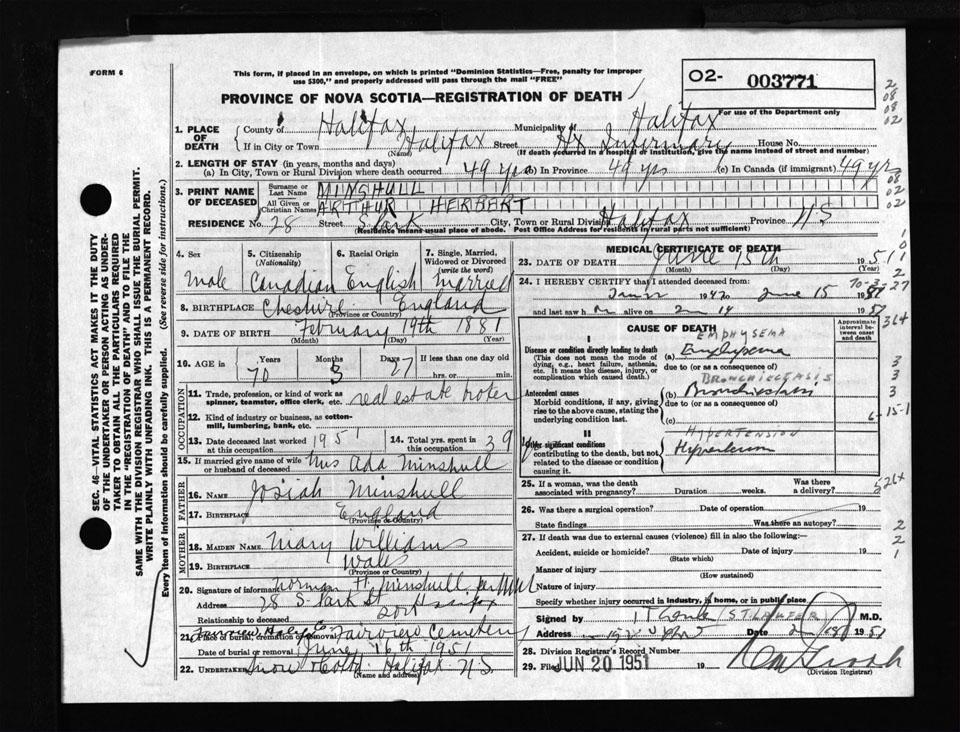 FORM 6
This form, if placed in an envelope, on which is printed "Dominion Statistics—Free, penalty for improper
use $300," and properly addressed will pass through the mail "FREE"
PROVINCE OF NOVA SCOTIA—REGISTRATION OF DEATH
O2- 003771
For use of the Department only
1. PLACE OF DEATH
County of Halifax Municipality of Halifax
If in City or Town Halifax Street Hx Infirmary House No.
(Name) (If death occurred in a hospital or institution, give the name instead of street and number)
2. LENGTH OF STAY (in years, months and days)
(a) In City, Town or Rural Division where death occurred 49 yrs (b) In Province 49 yrs (c) In Canada (if immigrant) 49 yr
3. PRINT NAME OF DECEASED
Surname or Last Name MINSHULL
All Given or Christian Names ARTHUR HERBERT
RESIDENCE No. 28 Street S. Park City, Town or Rural Division Halifax Province N S
(Residence means usual place of abode. Post Office Address for residents in rural parts not sufficient)
4. Sex Male
5. Citizenship (Nationality) Canadian
6. Racial Origin English
7. Single, Married, Widowed or Divorced (write the word) Married
8. BIRTHPLACE Cheshire England
(Province or Country)
9. DATE OF BIRTH February 19th 1881
(Month) (Day) (Year)
10. AGE in Years 70 Months 3 Days 27 If less than one day old
hrs. or min.
OCCUPATION
11. Trade, profession, or kind of work as
spinner, teamster, office clerk, etc. real estate
12. Kind of industry or business, as cotton-
mill, lumbering, bank, etc.
13. Date deceased last worked at this occupation 1951
14. Total yrs. spent in this occupation 39
15. If married give name of wife
or husband of deceased Mrs Ada Minshull
FATHER
16. NAME Josiah Minshull
17. BIRTHPLACE England
(Province or Country)
MOTHER
18. MAIDEN NAME Mary Williams
19. BIRTHPLACE Wales
(Province or Country)
20. Signature of informant Norman H. Minshull
Address 28 S. Park St Halifax
Relationship to deceased son
21. Place of burial, cremation or removal Fairview Cemetery
Date of burial or removal June 16th 1951
22. Undertaker Snow & Co Ltd. Halifax N.S.
(Name and address)
MEDICAL CERTIFICATE OF DEATH
23. DATE OF DEATH June 15th 1951
(Month) (Day) (Year)
24. I HEREBY CERTIFY that I attended deceased from:
1947 to June 15 1951
and last saw h m alive on
CAUSE OF DEATH
Approximate interval between onset and death
I
EMPHYSEMA
Disease or condition directly leading to death (a) Emphysema
(This does not mean the mode of dying, e.g., heart failure, asthenia, etc. It means the disease, injury, or complication which caused death.)
due to (or as a consequence of)
BRONCHIECTASIS
Antecedent causes (b) Bronchiectasis
Morbid conditions, if any, giving rise to the above cause, stating the underlying condition last.
due to (or as a consequence of)
(c)
II
HYPERTENSION
Other significant conditions
contributing to the death, but not related to the disease or condition causing it. Hypertension
25. If a woman, was the death associated with pregnancy? Duration weeks. Was there a delivery?
26. Was there a surgical operation? Date of operation 19
State findings Was there an autopsy?
27. If death was due to external causes (violence) fill in also the following:—
Accident, suicide or homicide? Date of injury 19
(State which)
Manner of injury
(How sustained)
Nature of injury
Specify whether injury occurred in industry, in home, or in public place
Signed by M.D.
Address Date 1951
28. Division Registrar's Record Number
29. Filed JUN 20 1951 19
(Division Registrar)
SEC. 46—VITAL STATISTICS ACT MAKES IT THE DUTY
OF THE UNDERTAKER OR PERSON ACTING AS UNDER-
TAKER TO OBTAIN ALL THE PARTICULARS REQUIRED
IN THE "REGISTRATION OF DEATH" AND TO FILE THE
SAME WITH THE DIVISION REGISTRAR WHO SHALL ISSUE THE BURIAL PERMIT.
WRITE PLAINLY WITH UNFADING INK. THIS IS A PERMANENT RECORD.
Every item of information should be carefully supplied. (See reverse side for instructions.)